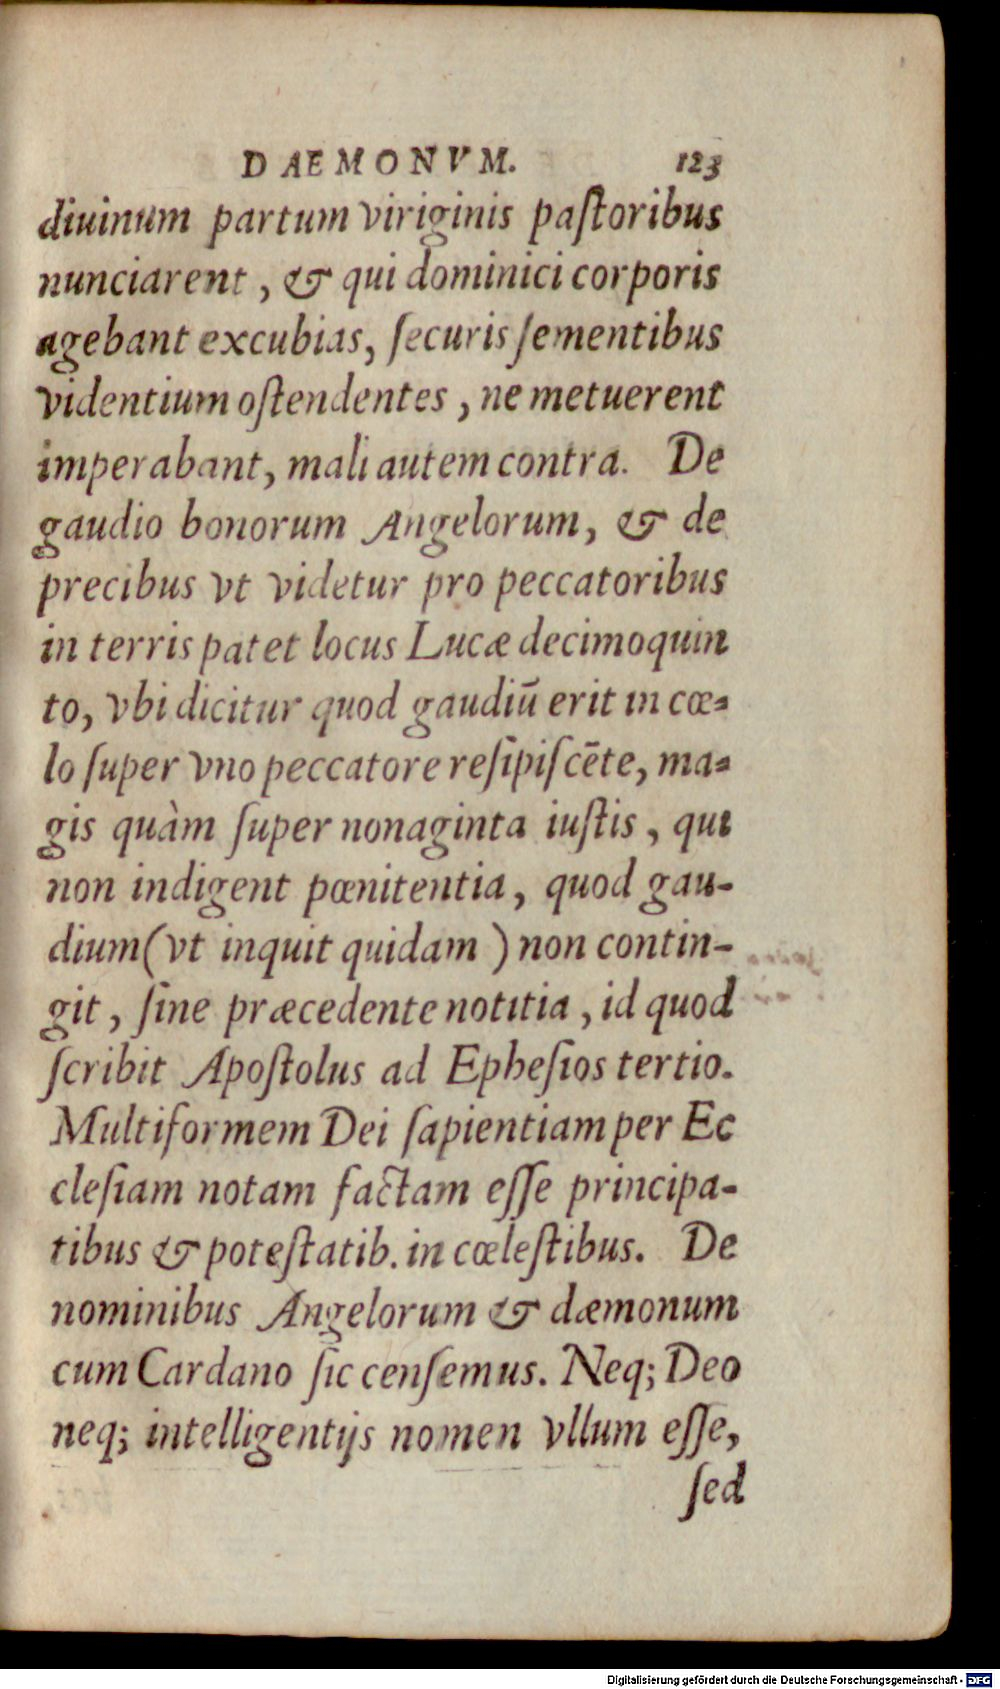 DAEMONVM. 123
diuinum partum viriginis paſtoribus
nunciarent, & qui dominici corporis
agebant excubias, ſecuris ſementibus
videntium oſtendentes, ne metuerent
imperabant, mali autem contra. De
gaudio bonorum Angelorum, & de
precibus vt videtur pro peccatoribus
in terris patet locus Lucæ decimoquin
to, vbi dicitur quod gaudiū erit in cœ-
lo ſuper vno peccatore reſipiſcēte, ma-
gis quàm ſuper nonaginta iuſtis, qui
non indigent pœnitentia, quod gau-
dium (vt inquit quidam) non contin-
git, ſine præcedente notitia, id quod
ſcribit Apoſtolus ad Epheſios tertio.
Multiformem Dei ſapientiam per Ec
cleſiam notam factam eſſe principa-
tibus & poteſtatib. in cœleſtibus. De
nominibus Angelorum & dæmonum
cum Cardano ſic cenſemus. Neq; Deo
neq; intelligentijs nomen vllum eſſe,
ſed
Digitalisierung gefördert durch die Deutsche Forschungsgemeinschaft - DFG